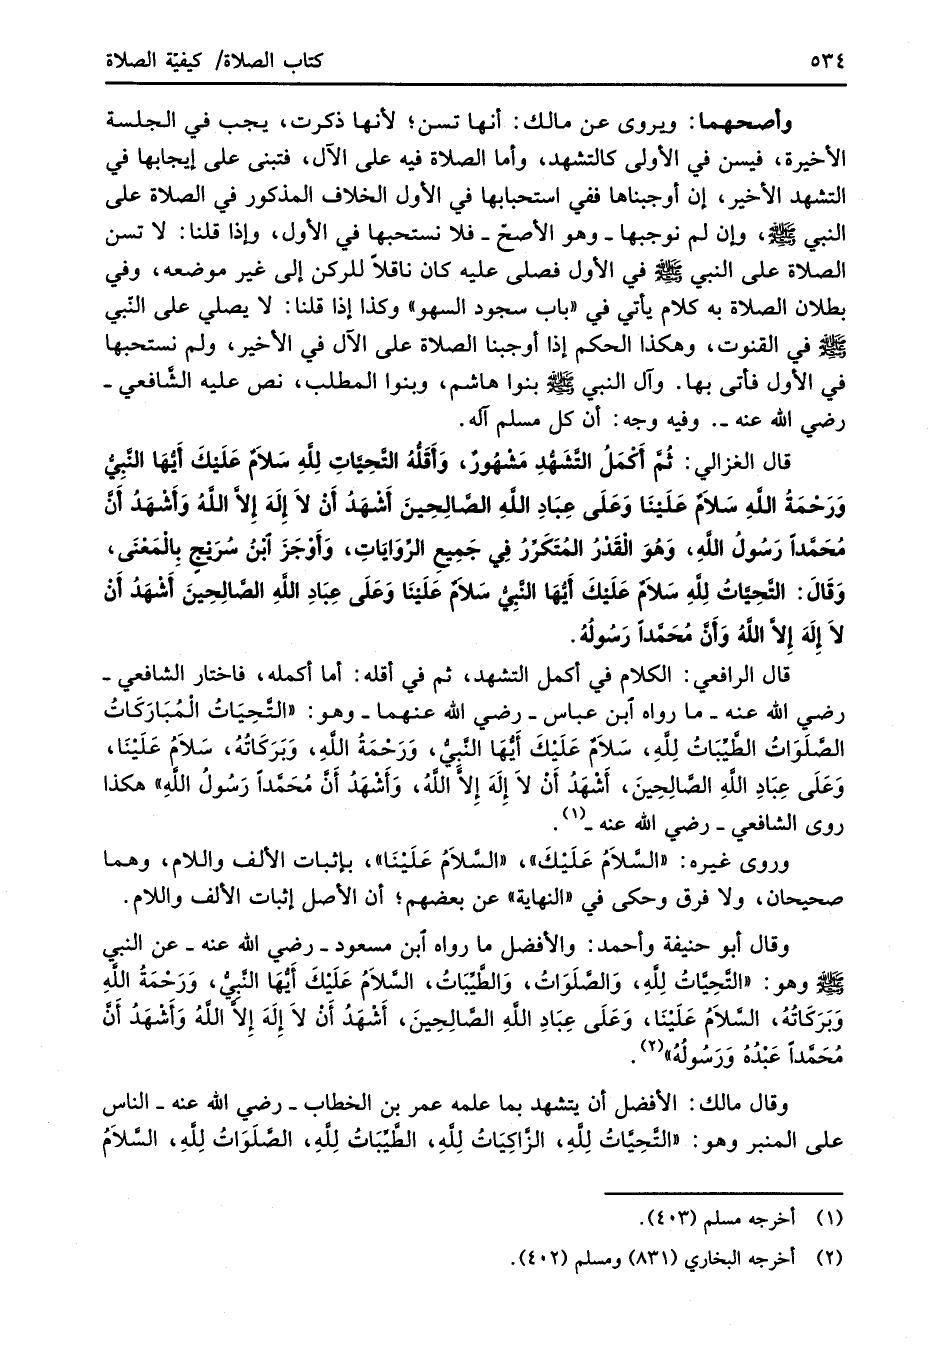 ٥٣٤ كتاب الصلاة/ كيفيّة الصلاة
وأصحهما: ويروى عن مالك: أنها تسن؛ لأنها ذكرت، يجب في الجلسة
الأخيرة، فيسن في الأولى كالتشهد، وأما الصلاة فيه على الآل، فتبنى على إيجابها في
التشهد الأخير، إن أوجبناها ففي استحبابها في الأول الخلاف المذكور في الصلاة على
النبي ﷺ، وإن لم نوجبها ـ وهو الأصحّ ـ فلا نستحبها في الأول، وإذا قلنا: لا تسن
الصلاة على النبي ﷺ في الأول فصلى عليه كان ناقلاً للركن إلى غير موضعه، وفي
بطلان الصلاة به كلام يأتي في «باب سجود السهو» وكذا إذا قلنا: لا يصلي على النّبي
ﷺ في القنوت، وهكذا الحكم إذا أوجبنا الصلاة على الآل في الأخير، ولم نستحبها
في الأول فأتى بها. وآل النبي ﷺ بنوا هاشم، وبنوا المطلب، نص عليه الشَّافعي ـ
رضي الله عنه ـ.. وفيه وجه: أن كل مسلم آله.
قال الغزالي: ثُمَّ أَكْمَلُ التَّشَهُّدِ مَشْهُورٌ، وَأَقَلُّهُ التَّحِيَّاتِ لِلَّهِ سَلاَمٌ عَلَيْكَ أَيُّهَا النَّبِيُّ
وَرَحْمَةُ اللَّهِ سَلاَمٌ عَلَيْنَا وَعَلَى عِبَادِ اللَّهِ الصَّالِحِينَ أَشْهَدُ أَنْ لاَ إِلَهَ إِلاَّ اللَّهُ وَأَشْهَدُ أَنَّ
مُحَمَّداً رَسُولُ اللَّهِ، وَهُوَ الْقَدْرُ الْمُتَكَرِّرُ فِي جَمِيعِ الرِّوَايَاتِ، وَأَوْجَزَ ٱبْنُ سُرَيْجٍ بِالْمَعْنَى،
وَقَالَ: التَّحِيَّاتُ لِلَّهِ سَلاَمٌ عَلَيْكَ أَيُّهَا النَّبِيُّ سَلاَمٌ عَلَيْنَا وَعَلَى عِبَادِ اللَّهِ الصَّالِحِينَ أَشْهَدُ أَنْ
لاَ إِلَهَ إِلاَّ اللَّهُ وَأَنَّ مُحَمَّداً رَسُولُهُ.
قال الرافعي: الكلام في أكمل التشهد، ثم في أقله: أما أكمله، فاختار الشافعي ـ
رضي الله عنه ـ ما رواه ٱبن عباس ـ رضي الله عنهما ـ وهو: «التَّحِيَاتُ الْمُبَارَكَاتُ
الصَّلَوَاتُ الطَّيِّبَاتُ لِلَّهِ، سَلاَمٌ عَلَيْكَ أَيُّهَا النَّبِيُّ، وَرَحْمَةُ اللَّهِ، وَبَرَكَاتُهُ، سَلاَمٌ عَلَيْنَا،
وَعَلَى عِبَادِ اللَّهِ الصَّالِحِينَ، أَشْهَدُ أَنْ لاَ إِلَهَ إِلاَّ اللَّهُ، وَأَشْهَدُ أَنَّ مُحَمَّداً رَسُولُ اللَّهِ» هكذا
روى الشافعي ـ رضي الله عنه ـ(١).
وروى غيره: «السَّلاَمُ عَلَيْكَ»، «السَّلاَمُ عَلَيْنَا»، بإثبات الألف واللام، وهما
صحيحان، ولا فرق وحكى في «النهاية» عن بعضهم؛ أن الأصل إثبات الألف واللام.
وقال أبو حنيفة وأحمد: والأفضل ما رواه ٱبن مسعود ـ رضي الله عنه ـ عن النبي
ﷺ وهو: «التَّحِيَّاتُ لِلَّهِ، وَالصَّلَوَاتُ، وَالطَّيِّبَاتُ، السَّلاَمُ عَلَيْكَ أَيُّهَا النَّبِيُّ، وَرَحْمَةُ اللَّهِ
وَبَرَكَاتُهُ، السَّلاَمُ عَلَيْنَا، وَعَلَى عِبَادِ اللَّهِ الصَّالِحِينَ، أَشْهَدُ أَنْ لاَ إِلَهَ إِلاَّ اللَّهُ وَأَشْهَدُ أَنَّ
مُحَمَّداً عَبْدُهُ وَرَسُولُهُ»(٢).
وقال مالك: الأفضل أن يتشهد بما علمه عمر بن الخطاب ـ رضي الله عنه ـ الناس
على المنبر وهو: «التَّحِيَّاتُ لِلَّهِ، الزَّاكِيَاتُ لِلَّهِ، الطَّيِّبَاتُ لِلَّهِ، الصَّلَوَاتُ لِلَّهِ، السَّلاَمُ
(١) أخرجه مسلم (٤٠٣).
(٢) أخرجه البخاري (٨٣١) ومسلم (٤٠٢).